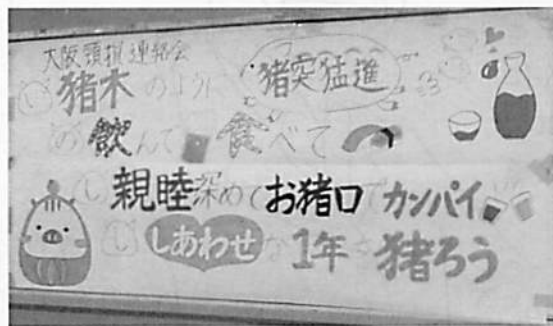 大阪頸損連絡会
い 猪木のように 猪突猛進
の 飲んで 食べて
し 親睦深めて お猪口で カンパイ
し しあわせな 1年を 猪ろう